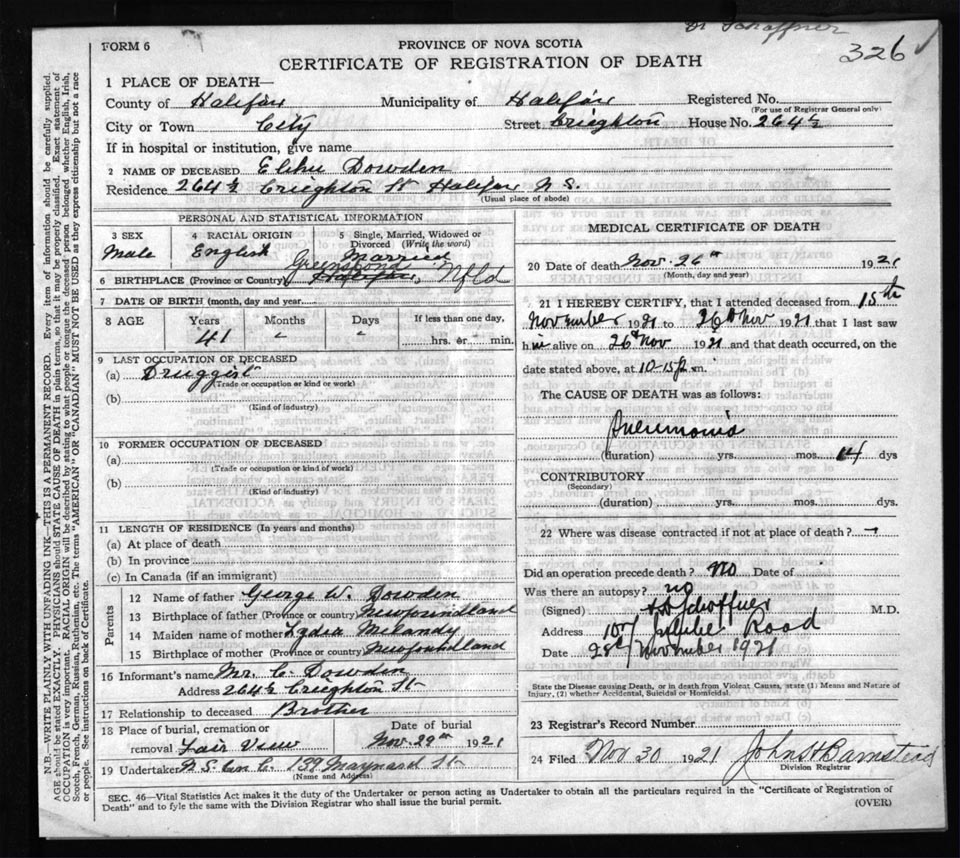 Dr Schaffner
326
FORM 6
PROVINCE OF NOVA SCOTIA
CERTIFICATE OF REGISTRATION OF DEATH
1 PLACE OF DEATH—
County of Halifax Municipality of Halifax Registered No.
(For use of Registrar General only)
City or Town City Street Crieghton House No. 264½
If in hospital or institution, give name
2 NAME OF DECEASED Elihu Dowden
Residence 264½ Creighton St Halifax N.S.
(Usual place of abode)
PERSONAL AND STATISTICAL INFORMATION
3 SEX 4 RACIAL ORIGIN 5 Single, Married, Widowed or Divorced (Write the word)
Male English Married
6 BIRTHPLACE (Province or Country) Greenspond, Nfld
7 DATE OF BIRTH (month, day and year)
8 AGE Years Months Days If less than one day,
41 " " hrs. or min.
9 LAST OCCUPATION OF DECEASED
(a) Druggist
(Trade or occupation or kind or work)
(b)
(Kind of industry)
10 FORMER OCCUPATION OF DECEASED
(a)
(Trade or occupation or kind of work)
(b)
(Kind of industry)
11 LENGTH OF RESIDENCE (In years and months)
(a) At place of death
(b) In province
(c) In Canada (if an immigrant)
Parents
12 Name of father George W. Dowden
13 Birthplace of father (Province or country) Newfoundland
14 Maiden name of mother Lydia
15 Birthplace of mother (Province or country) Newfoundland
16 Informant's name Mr. C. Dowden
Address 264½ Creighton St
17 Relationship to deceased Brother
18 Place of burial, cremation or removal Fair View
Date of burial
Nov. 29th 1921
19 Undertaker N.S. Un C. 139 Maynard St
(Name and Address)
MEDICAL CERTIFICATE OF DEATH
20 Date of death Nov. 26th 1921
(Month, day and year)
21 I HEREBY CERTIFY, that I attended deceased from 15th
November 1921 to 26th Nov 1921 that I last saw
him alive on 26th Nov 1921 and that death occurred, on the
date stated above, at 10-15 p.m.
The CAUSE OF DEATH was as follows:
Pneumonia
(duration) yrs. mos. 14 dys
CONTRIBUTORY
(Secondary)
(duration) yrs. mos. dys.
22 Where was disease contracted if not at place of death?
Did an operation precede death? No Date of
Was there an autopsy? no
(Signed) Schaffner M.D.
Address Road
Date 28th November 1921
State the Disease causing Death, or in death from Violent Causes, state (1) Means and Nature of
Injury, (2) whether Accidental, Suicidal or Homicidal.
23 Registrar's Record Number
24 Filed Nov 30 1921 John H Barnstead
Division Registrar
SEC. 46—Vital Statistics Act makes it the duty of the Undertaker or person acting as Undertaker to obtain all the particulars required in the "Certificate of Registration of
Death" and to fyle the same with the Division Registrar who shall issue the burial permit.
(OVER)
N.B.—WRITE PLAINLY WITH UNFADING INK—THIS IS A PERMANENT RECORD. Every item of information should be carefully supplied.
AGE should be stated EXACTLY. PHYSICIANS should STATE CAUSE OF DEATH in plain terms, so that it may be properly classified. Exact statement of
OCCUPATION is very important. RACIAL ORIGIN will be described by stating to what people or tongue the deceased person belonged whether English, Irish,
Scotch, French, German, Russian, Ruthenian, etc. The terms "AMERICAN" OR "CANADIAN" MUST NOT BE USED as they express citizenship but not a race
or people. See instructions on back of Certificate.